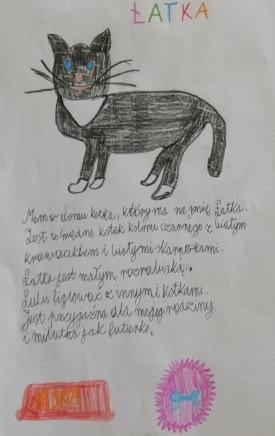 ŁATKA
Mam w domu kotka, który ma na imię Łatka.
Jest to średni kotek koloru czarnego z białym
krawacikiem i białymi skarpetkami.
Łatka jest małym rozrabiaką.
Lubi figlować z innymi kotkami.
Jest przyjazna dla mojej rodziny
i milutka jak futerko.